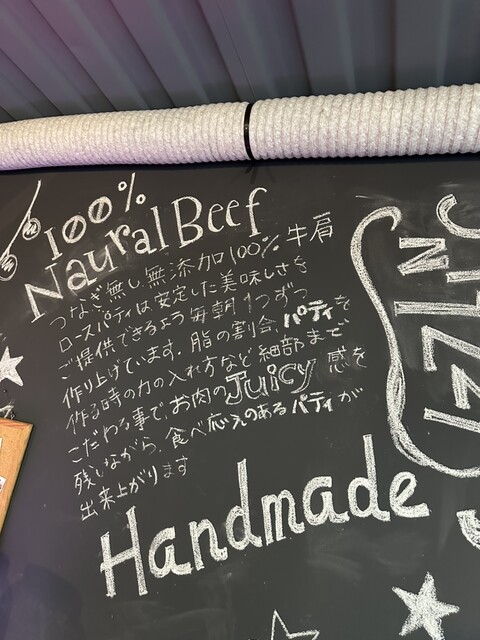 100%
Naural Beef
つなぎ無し無添加100%牛肩
ロースパティは安定した美味しさを
ご提供できるよう毎朝1つずつ
作り上げています。脂の割合、パティを
作る時の力の入れ方など細部まで
こだわる事で、お肉のJuicy感を
残しながら、食べ応えのあるパティが
出来上がります
Handmade